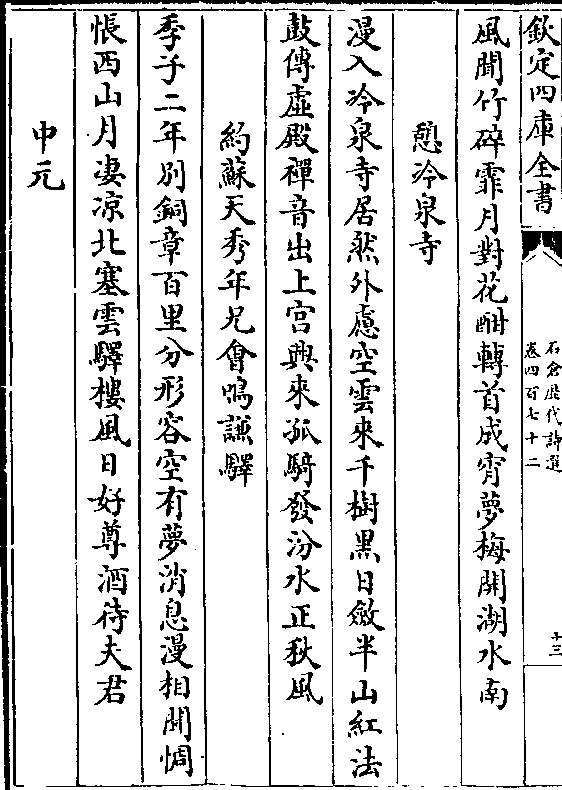 欽定四庫全書
石倉歴代詩選
卷四百七十二
十三
風聞竹碎霏月對花酣轉首成宵夢梅開湖水南
憩冷泉寺
漫入冷泉寺居然外慮空雲來千樹黒日斂半山紅法
鼓傳虛殿禪音出上宫興來孤騎發汾水正秋風
約蘇天秀年兄會鳴謙驛
季子二年別銅章百里分形容空有夢消息漫相聞惆
悵西山月凄凉北塞雲驛樓風日好尊酒待夫君
中元